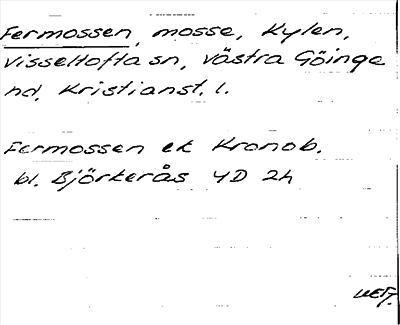 Fermossen, mosse, Kylen,
Visseltofta sn, västra Göinge
hd, Kristianst. l.
Fermossen ek Kronob.
bl. Björkerås 4D 2h